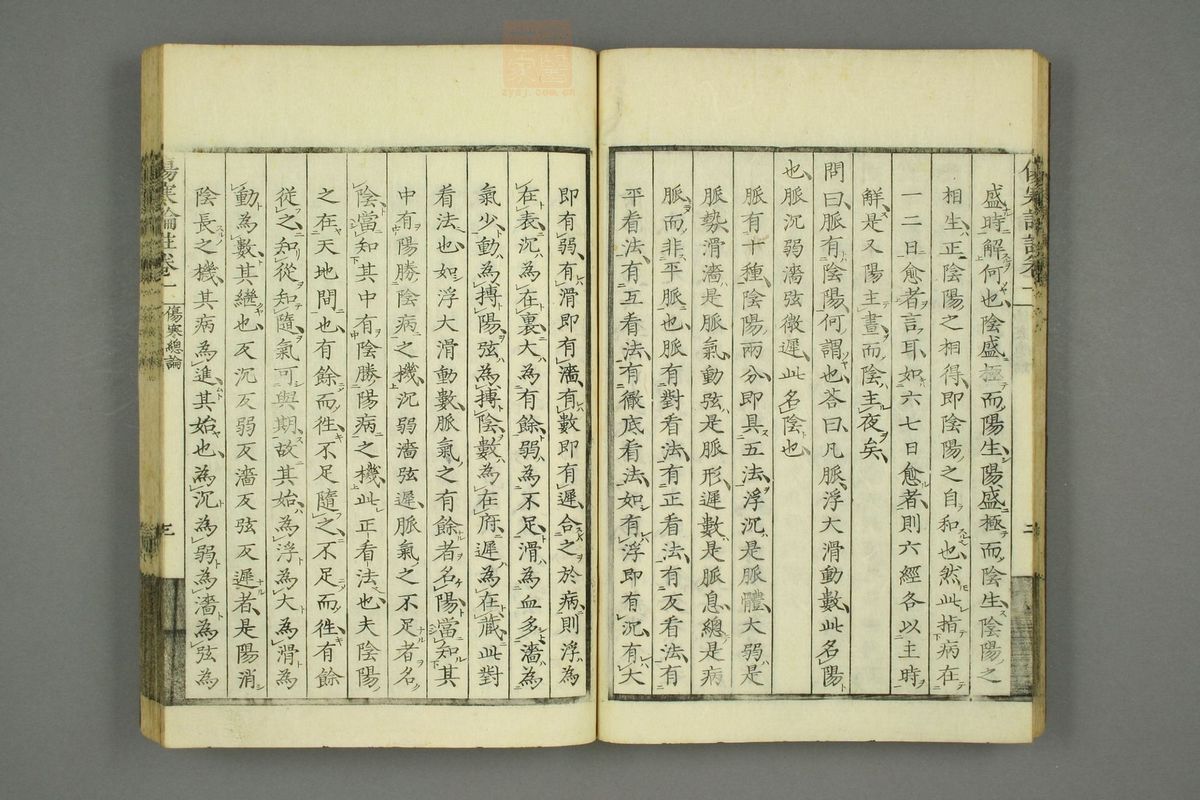 盛時解何也陰盛極而陽生陽盛極而陰生陰陽之
相生正陰陽之相得即陰陽之自和也然此指病在
一二日愈者言耳如六七日愈者則六經各以主時
解是又陽主晝而陰主夜矣
問曰脈有陰陽何謂也荅曰凡脈浮大滑動數此名陽
也脈沉弱濇弦微遲此名陰也
脈有十種陰陽兩分即具五法浮沉是脈體大弱是
脈勢滑濇是脈氣動弦是脈形遲數是脈息總是病
脈而非平脈也脈有對看法有正看法有反看法有
平看法有互看法有徹底看法如有浮即有沉有大
即有弱有滑即有濇有數即有遲合之於病則浮為
在表沉為在裏大為有餘弱為不足滑為血多濇為
氣少動為搏陽弦為搏陰數為在府遲為在藏此對
看法也如浮大滑動數脈氣之有餘者名陽當知其
中有陽勝陰病之機沉弱濇弦遲脈氣之不足者名
陰當知其中有陰勝陽病之機此正看法也夫陰陽
之在天地間也有餘而徃不足隨之不足而徃有餘
從之知從知隨氣可與期故其始為浮為大為滑為
動為數其變也反沉反弱反濇反弦反遲者是陽消
陰長之機其病為進其始也為沉為弱為濇為弦為
傷寒論註卷二 傷寒總論
三
二
zysj.com.cn